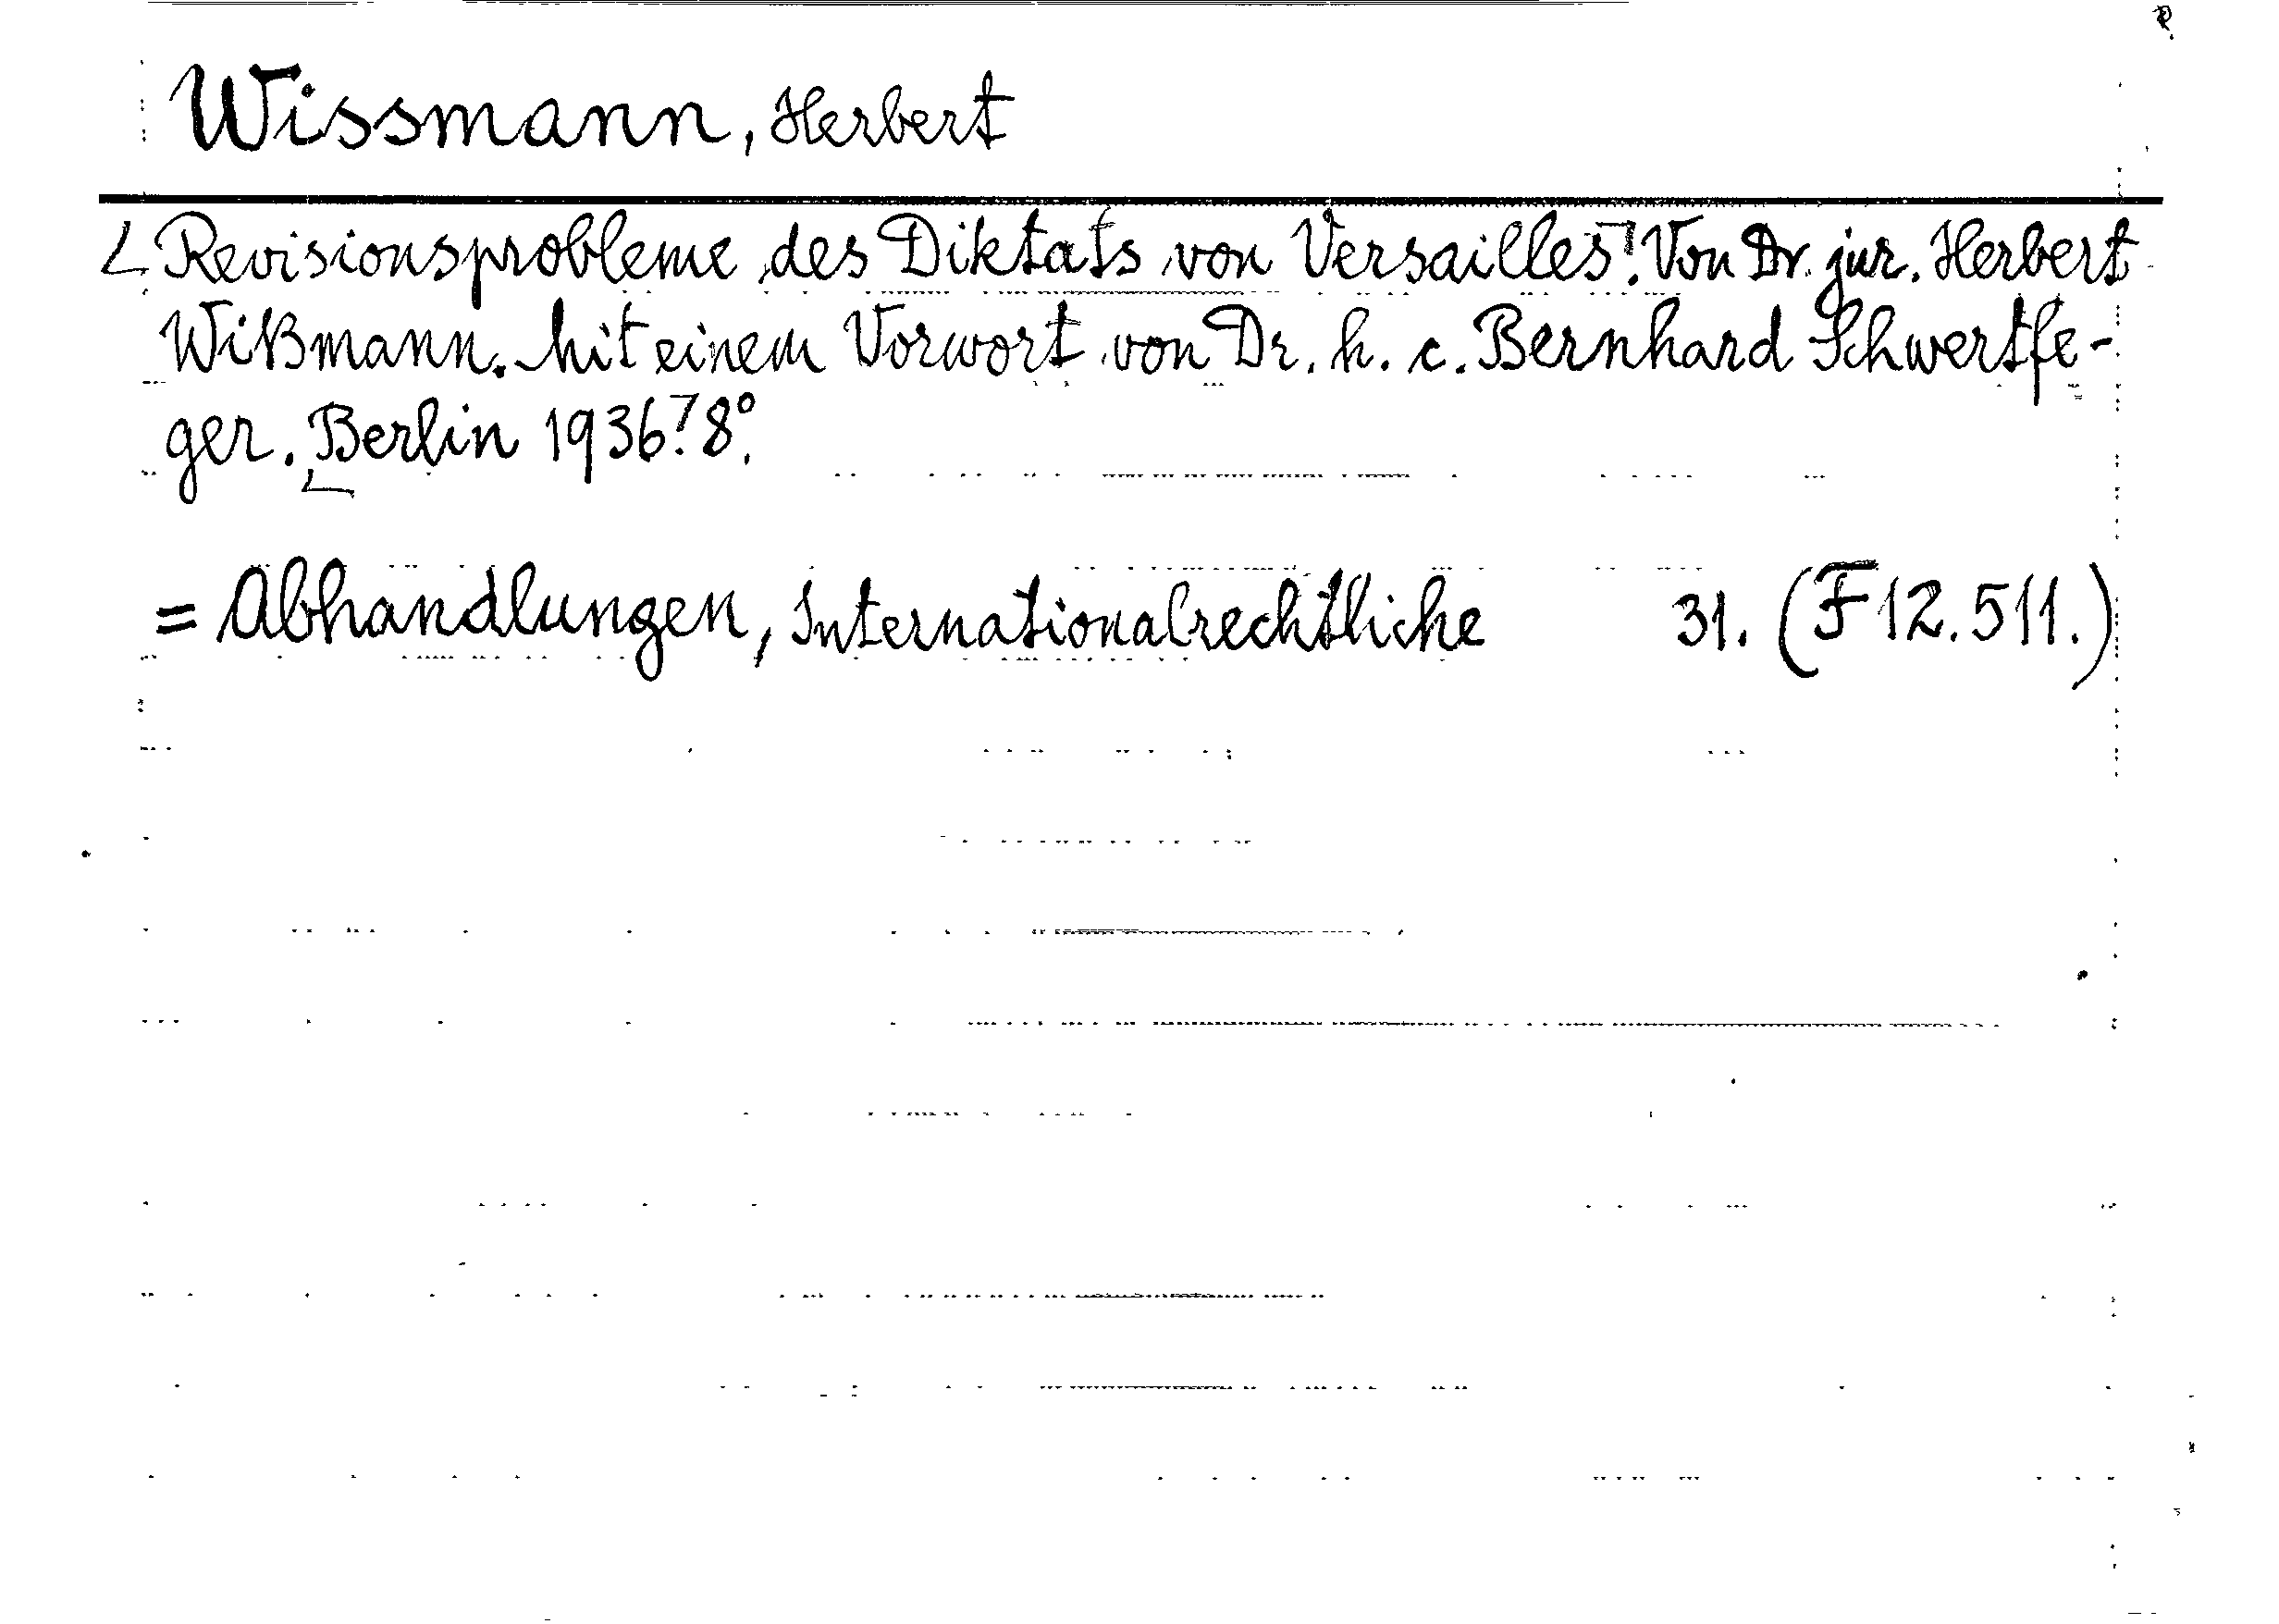 Wissmann, Herbert
Revisionsprobleme des Diktats von Versailles. Von Dr. jur. Herbert
Wißmann. Mit einem Vorwort von Dr. h. c. Bernhard Schwertfe-
ger. Berlin 1936. 8°.
= Abhandlungen, Internationalrechtliche 31. (F 12.511.)